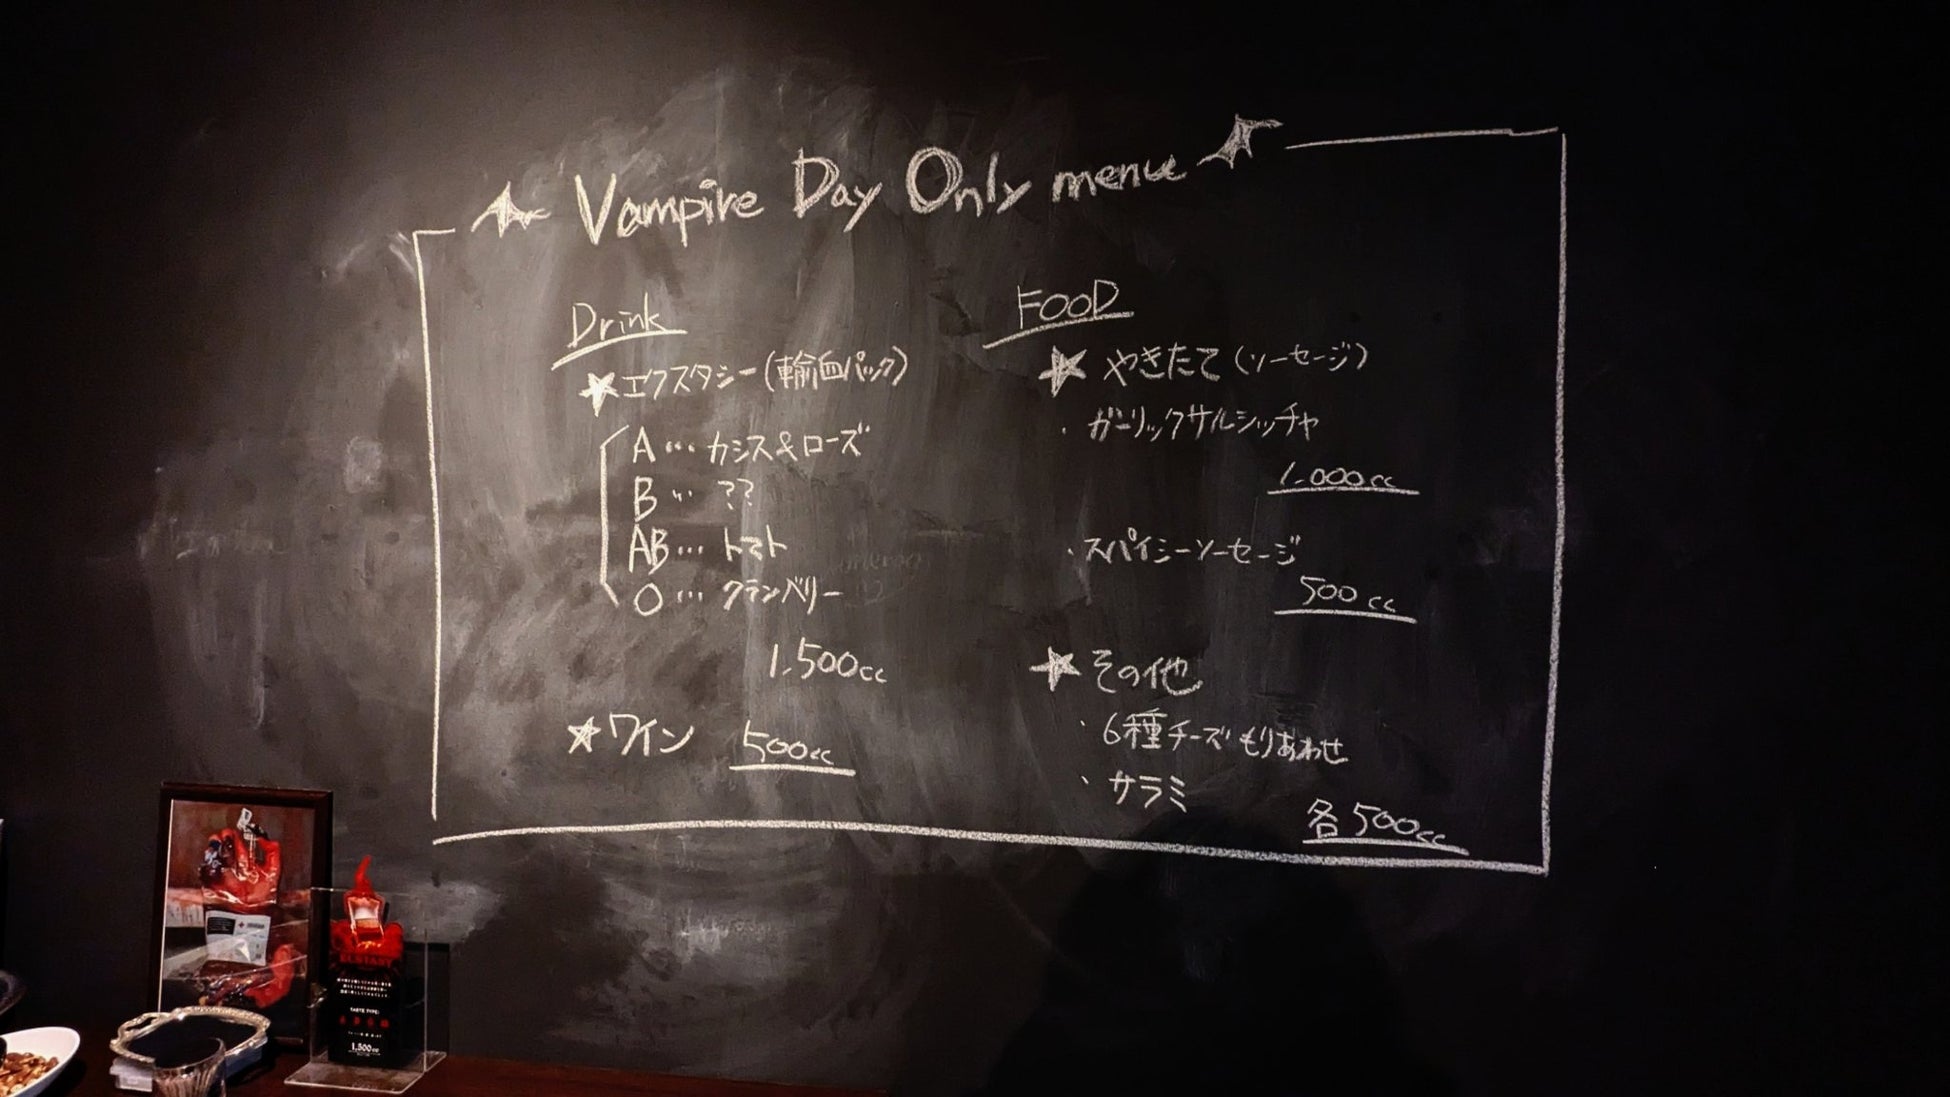 Vampire Day Only menu
Drink
★エクスタシー(輸血パック)
A … カシス&ローズ
B … ??
AB … トマト
O … クランベリー
1,500cc
★ワイン 500cc
FOOD
★ やきたて(ソーセージ)
・ガーリックサルシッチャ
1,000cc
・スパイシーソーセージ
500cc
★その他
・6種チーズもりあわせ
・サラミ
各500cc
ECSTASY
TASTE TYPE:
1,500cc